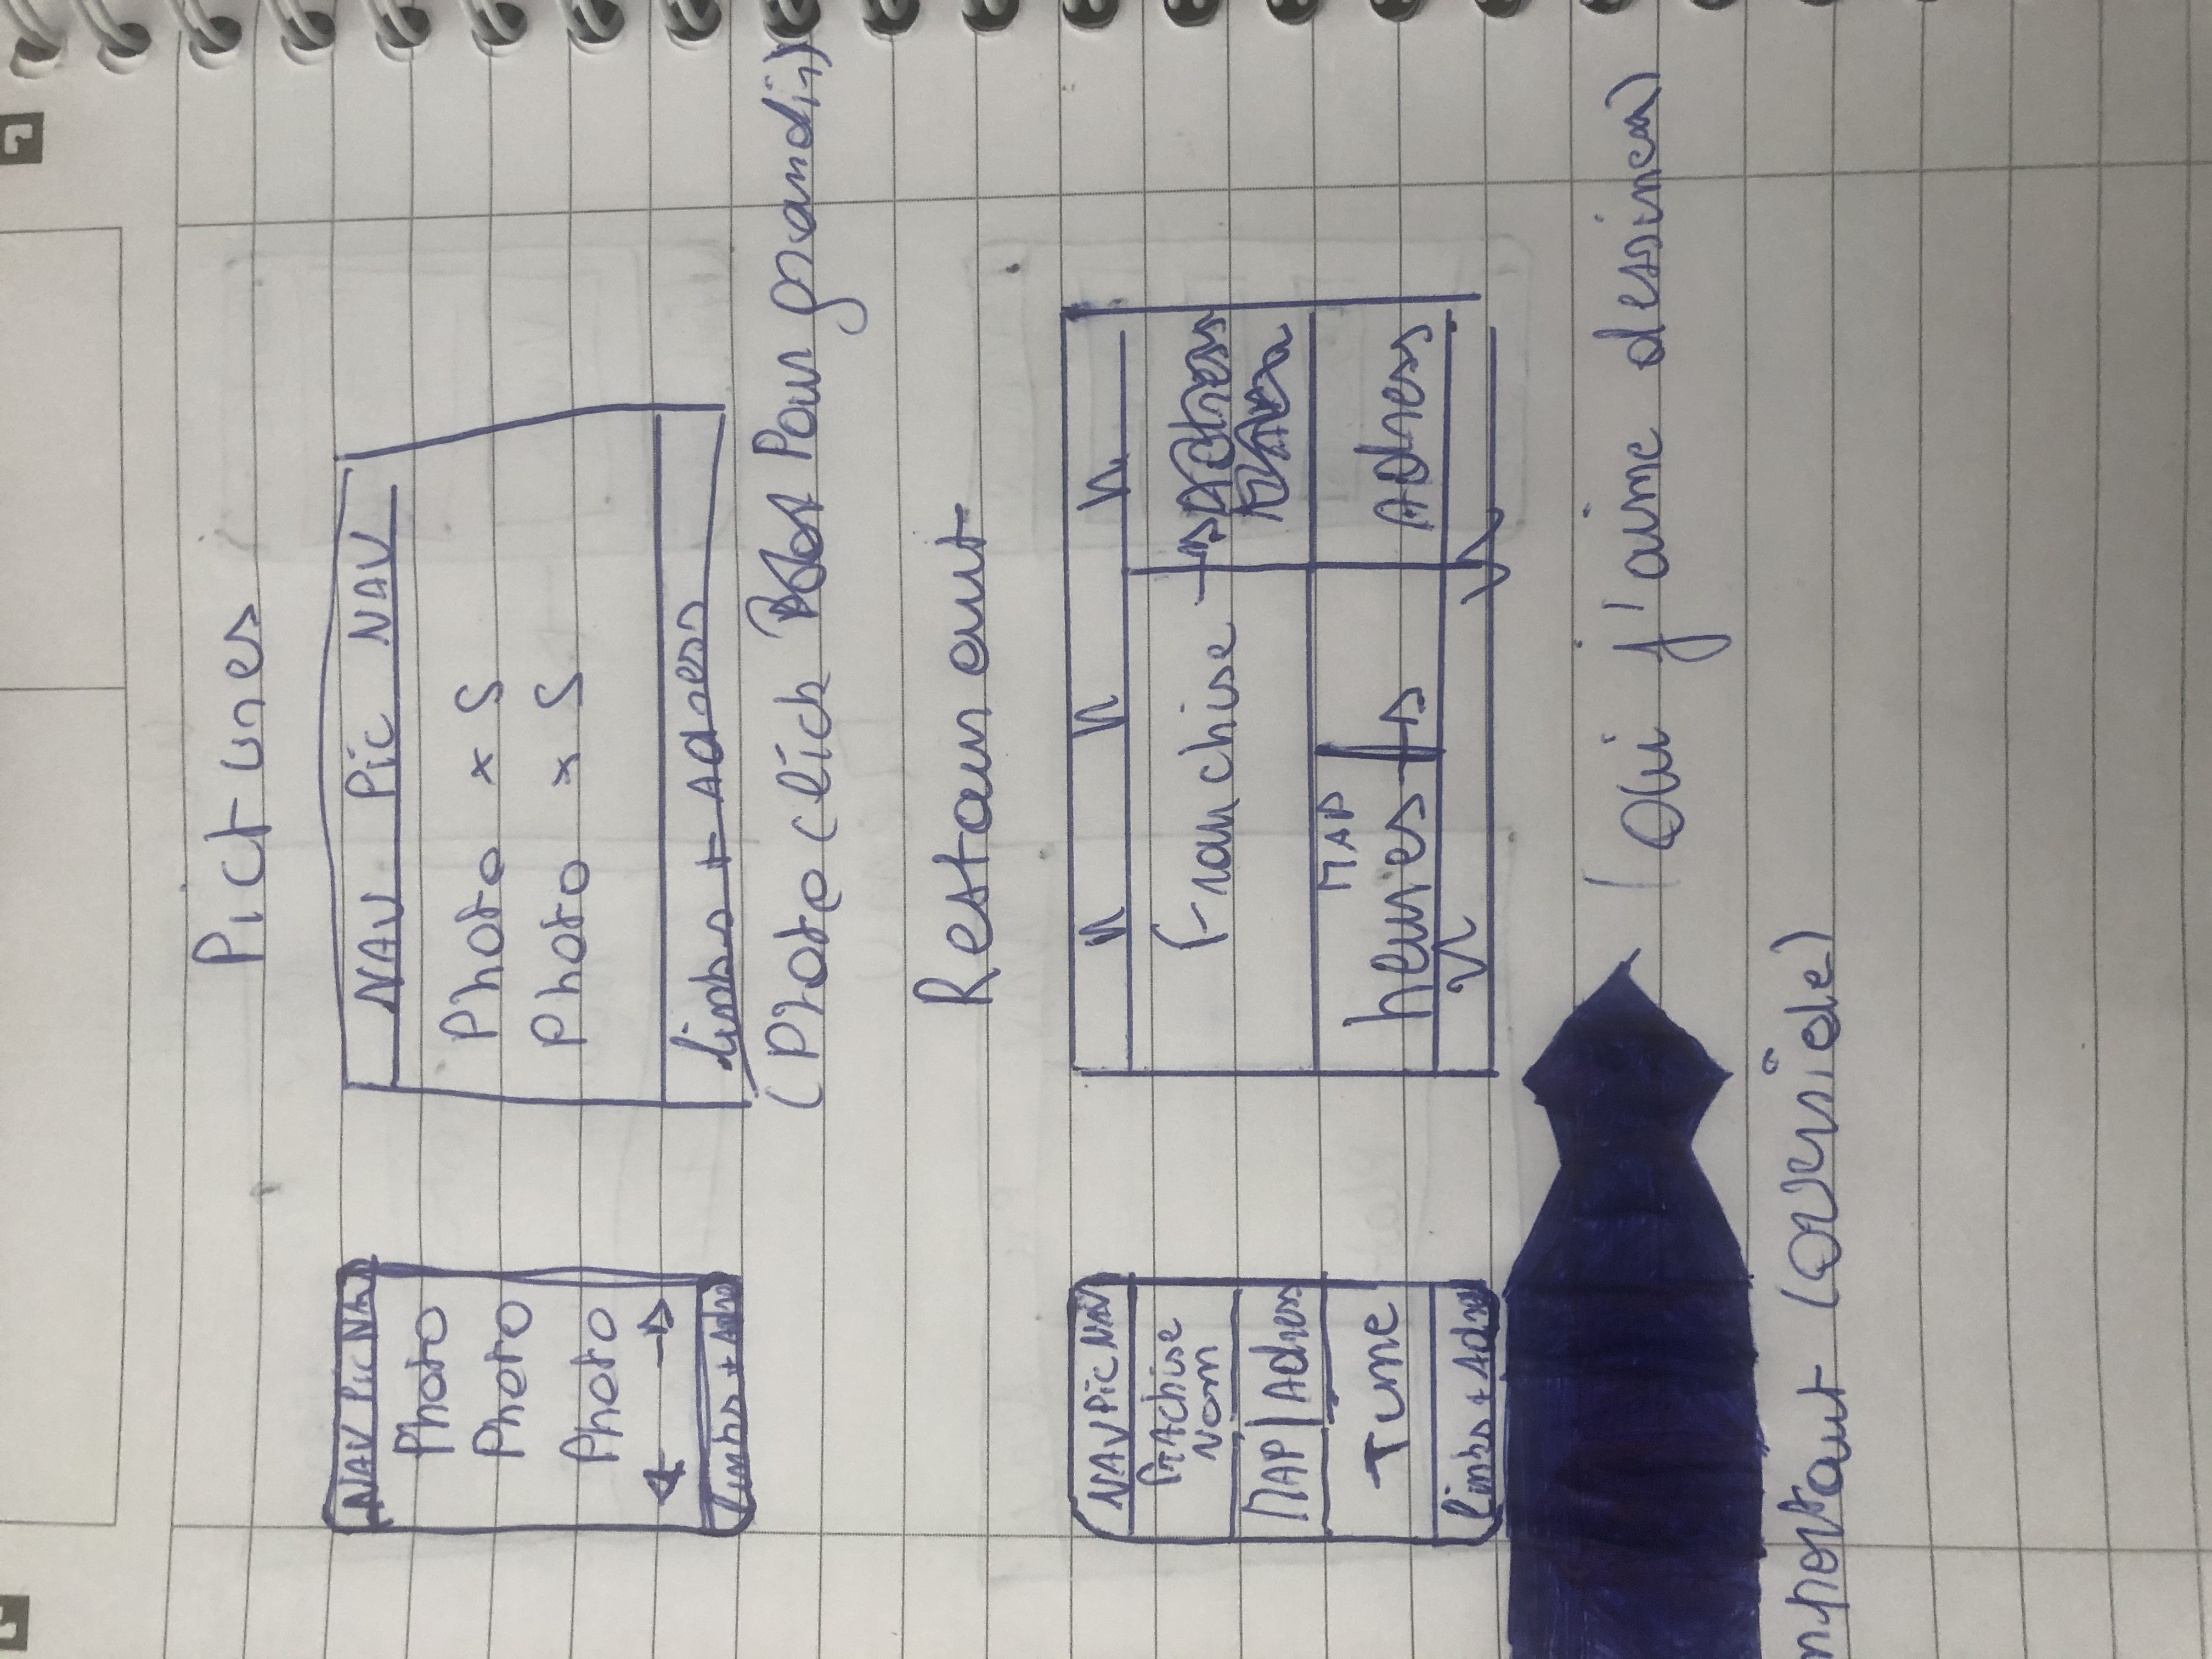 Pictures
NAV Pic NAV
Photo
Photo
Photo
NAV Pic NAV
Photo x 5
Photo x 5
links + Adress
(Photo click Pour grandir)
Restaurant
NAV Pic NAV
Nom
MAP Adress
Time
links +
Franchise
MAP
heures
Adress
(oui j'aime dessiner)
mportant (override)